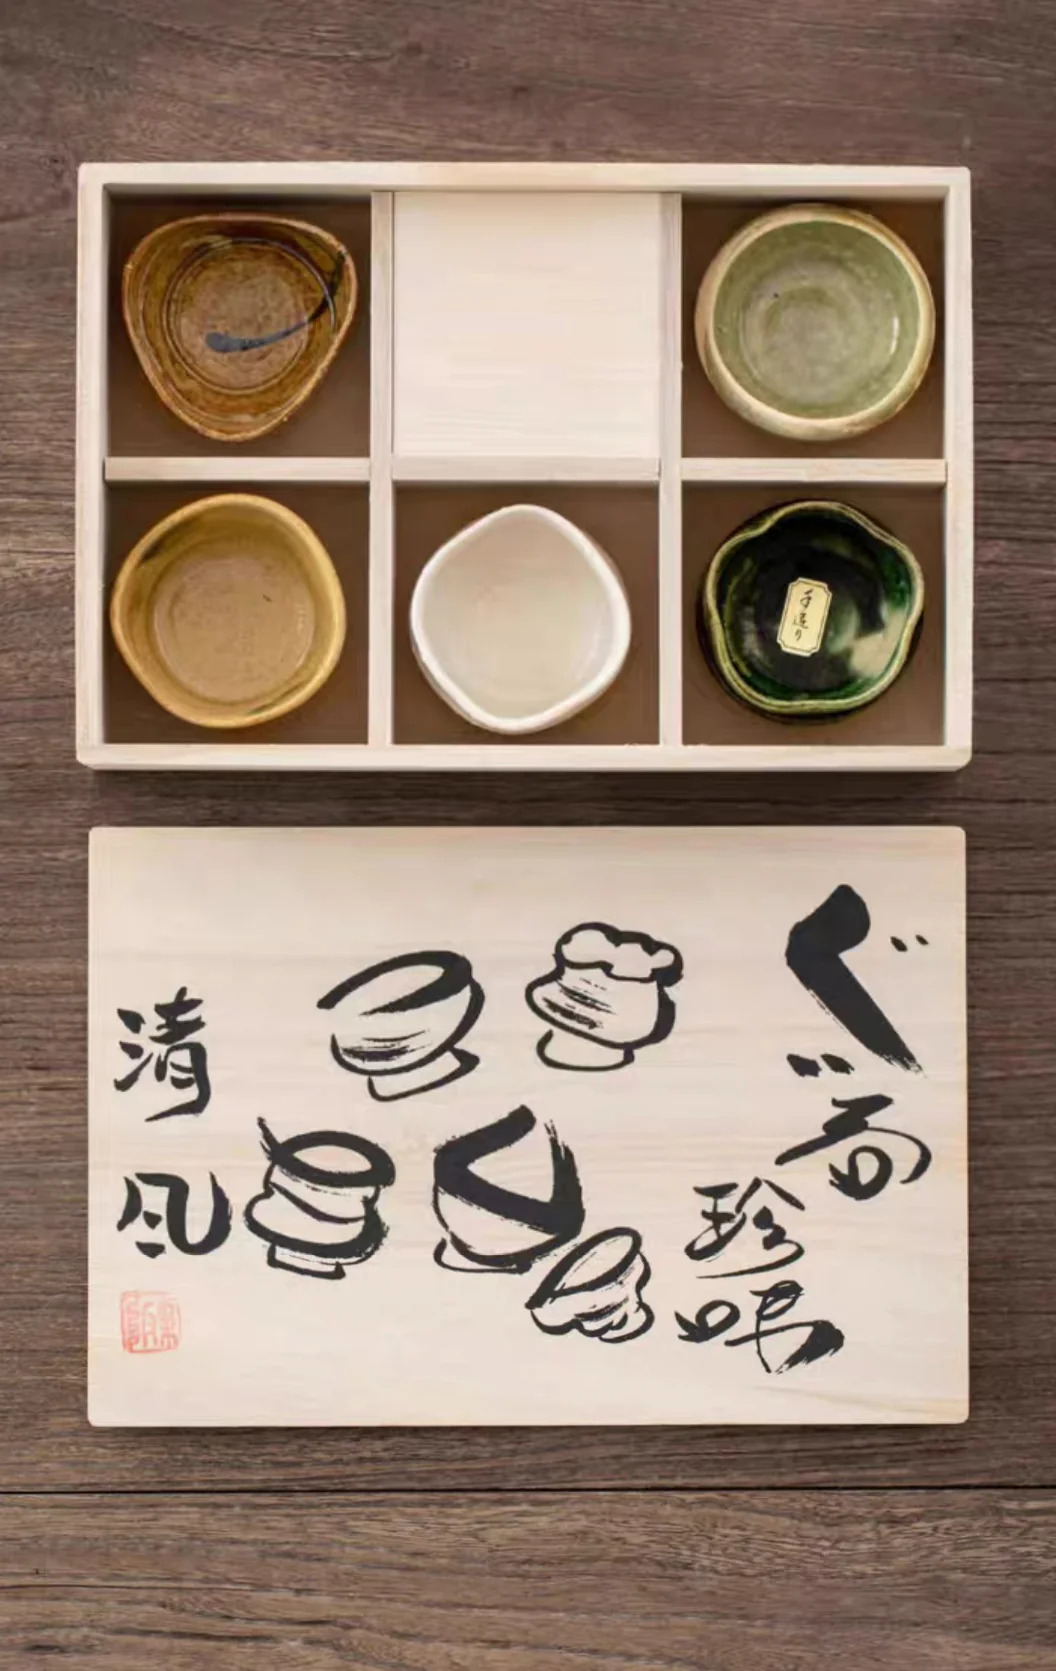 手造り
ぐい呑
珍味
清風